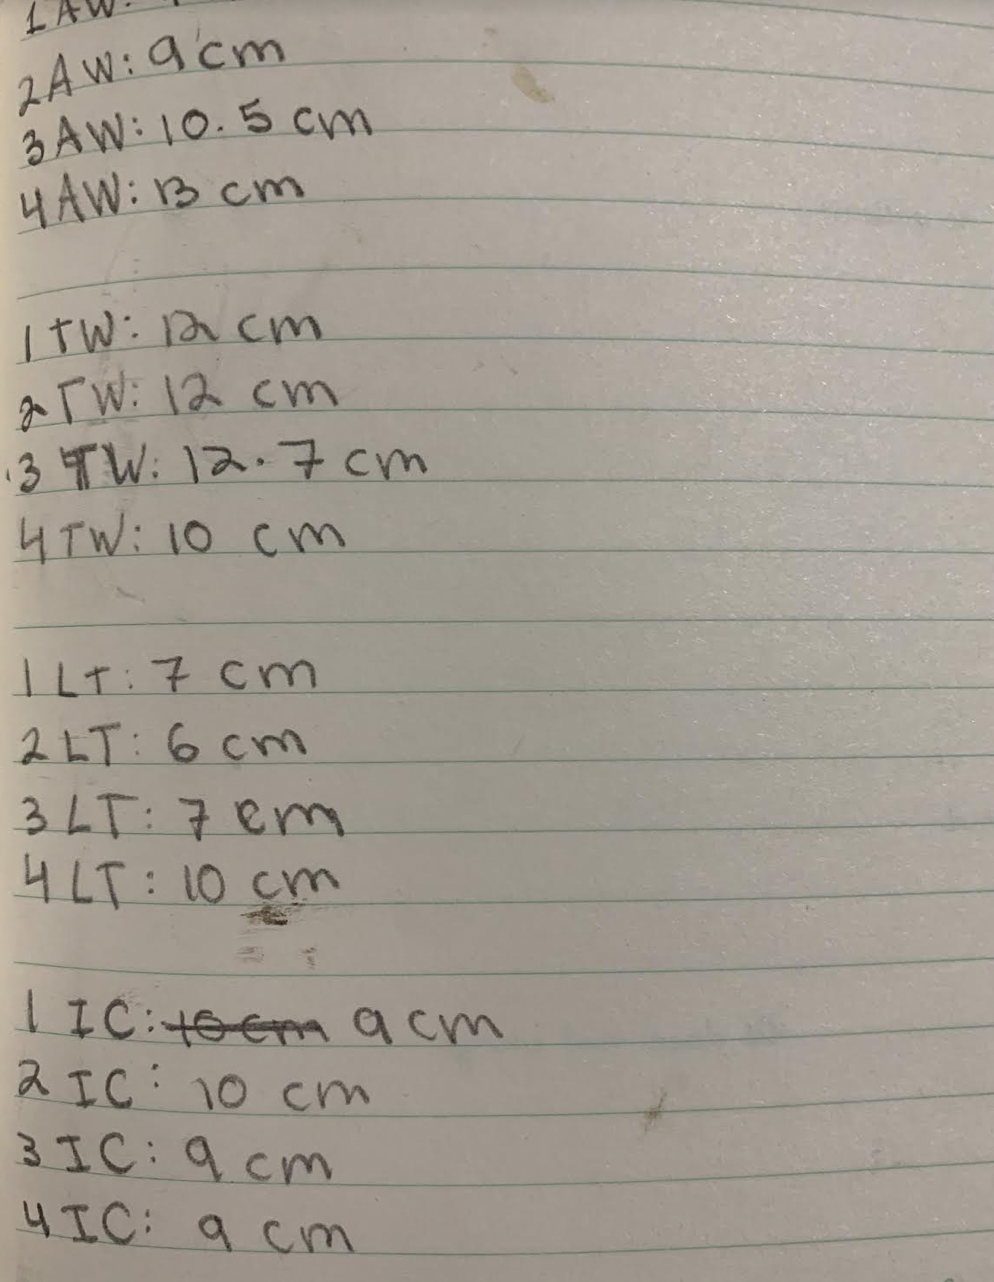 1AW:
2AW: 9 cm
3AW: 10.5 cm
4AW: 13 cm
1TW: 12 cm
2TW: 12 cm
3 TW: 12.7 cm
4TW: 10 cm
1LT: 7 cm
2LT: 6 cm
3LT: 7 cm
4LT: 10 cm
1 IC: 10 cm 9 cm
2 IC: 10 cm
3 IC: 9 cm
4 IC: 9 cm